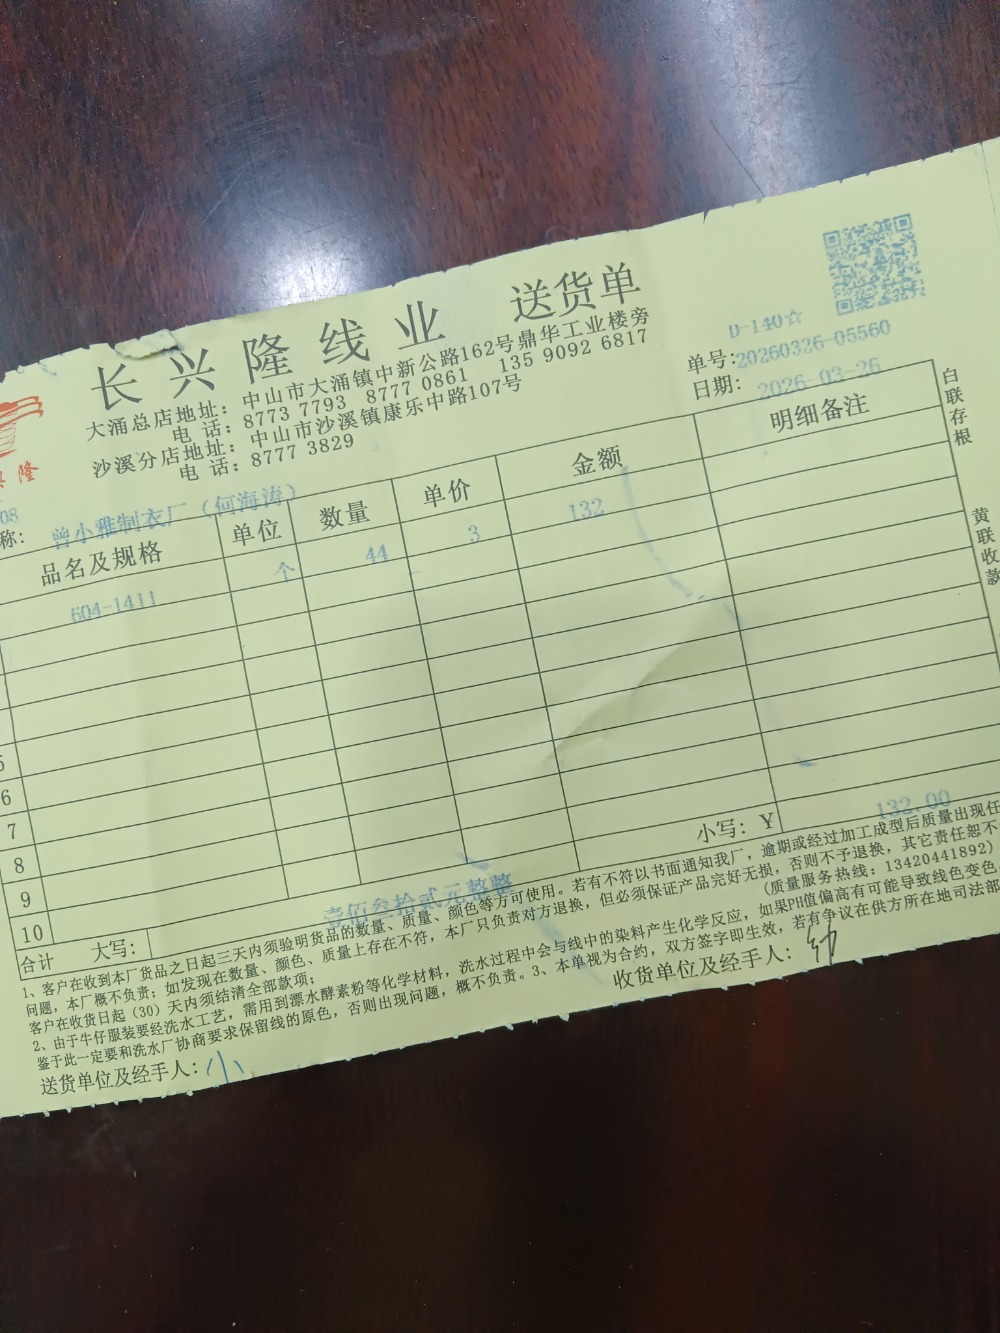 长兴隆线业 送货单
大涌总店地址：中山市大涌镇中新公路162号鼎华工业楼旁
电 话：8773 7793 8777 0861 135 9092 6817
沙溪分店地址：中山市沙溪镇康乐中路107号
电 话：8777 3829
D-140☆
单号：20260326-05560
日期：2026-03-26
隆
08
称：曾小雅制衣厂（何海涛）
品名及规格 单位 数量 单价 金额 明细备注
604-1411 个 44 3 132
6
7
8
9
10
小写：Y 132.00
合计 大写：壹佰叁拾贰元整整
1、客户在收到本厂货品之日起三天内须验明货品的数量、质量、颜色等方可使用。若有不符以书面通知我厂，逾期或经过加工成型后质量出现任
问题，本厂概不负责；如发现在数量、颜色、质量上存在不符，本厂只负责对方退换，但必须保证产品完好无损，否则不予退换，其它责任恕不
客户在收货日起（30）天内须结清全部款项； （质量服务热线：13420441892）
2、由于牛仔服装要经洗水工艺，需用到漂水酵素粉等化学材料，洗水过程中会与线中的染料产生化学反应，如果PH值偏高有可能导致线色变色
鉴于此一定要和洗水厂协商要求保留线的原色，否则出现问题，概不负责。3、本单视为合约，双方签字即生效，若有争议在供方所在地司法部
送货单位及经手人： 收货单位及经手人：
白联存根
黄联收款